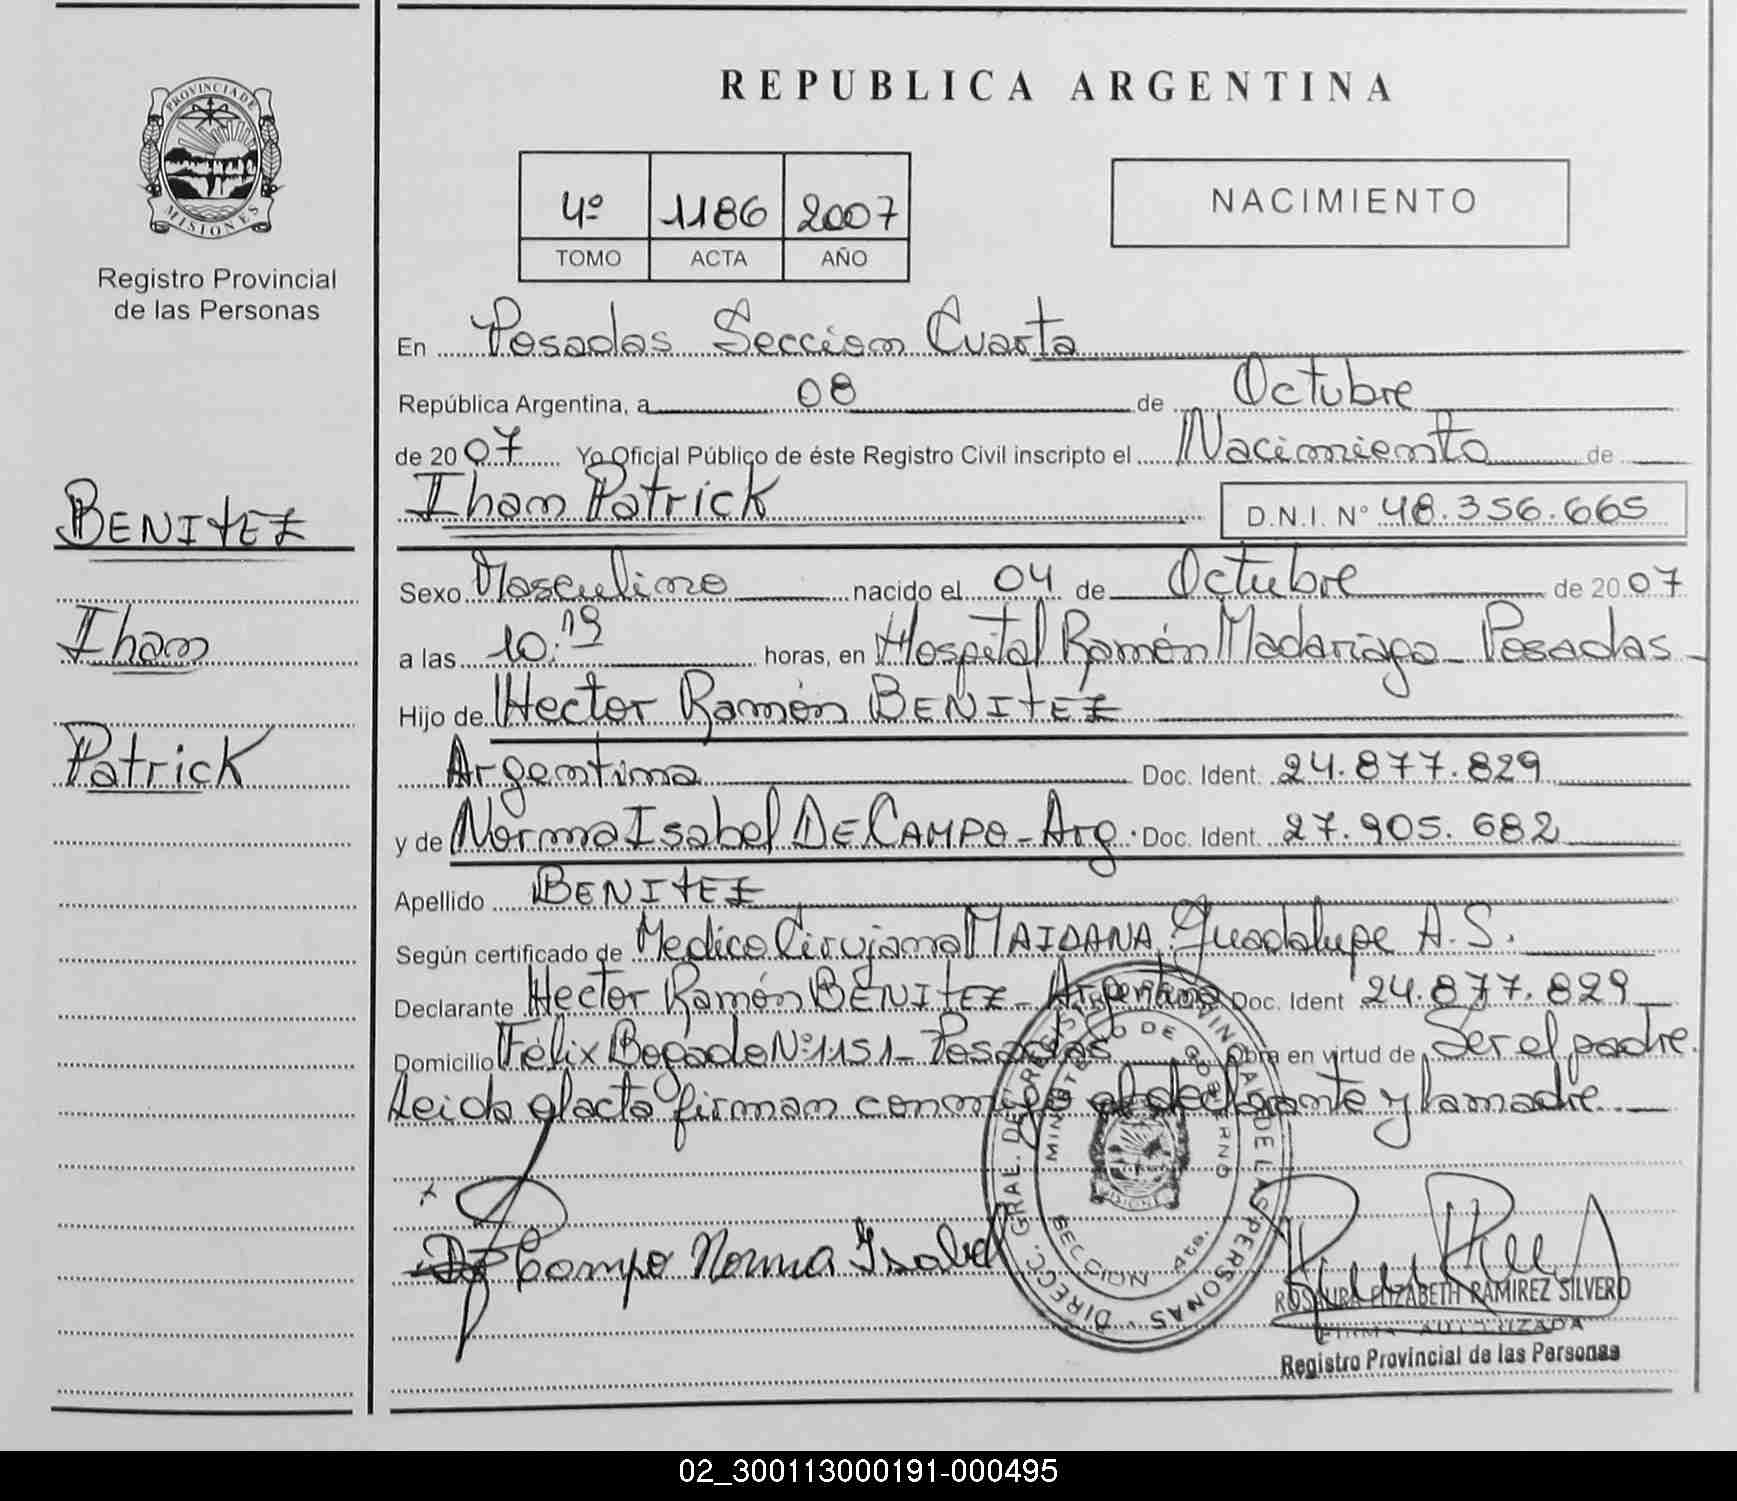 PROVINCIA DE
MISIONES
Registro Provincial
de las Personas
BENITEZ
Iham
Patrick
REPUBLICA ARGENTINA
4º 1186 2007
TOMO ACTA AÑO
NACIMIENTO
En Posadas Sección Cuarta
República Argentina, a 08 de Octubre
de 2007 Yo Oficial Público de éste Registro Civil inscripto el Nacimiento de
Iham Patrick D.N.I. Nº 48.356.665
Sexo Masculino nacido el 04 de Octubre de 2007
a las 10:19 horas, en Hospital Ramón Madariaga - Posadas -
Hijo de Hector Ramón BENITEZ
Argentina Doc. Ident. 24.877.829
y de Norma Isabel DE CAMPO - Arg. Doc. Ident. 27.905.682
Apellido BENITEZ
Según certificado de Medico Cirujana MAIDANA, Guadalupe A.S.
Declarante Hector Ramón BENITEZ - Argentino Doc. Ident 24.877.829
Domicilio Félix Bogado Nº 1151 - Posadas Obra en virtud de Ser el padre.
Leida el acta firman conmigo el declarante y la madre
De Campo Norma Isabel
DIRECC. GRAL. DEL REGISTRO PROVINCIAL DE LAS PERSONAS
MINISTERIO DE GOBIERNO
SECCION 4ta.
ROSAURA ELIZABETH RAMIREZ SILVERO
FIRMA AUTORIZADA
Registro Provincial de las Personas
02_300113000191-000495